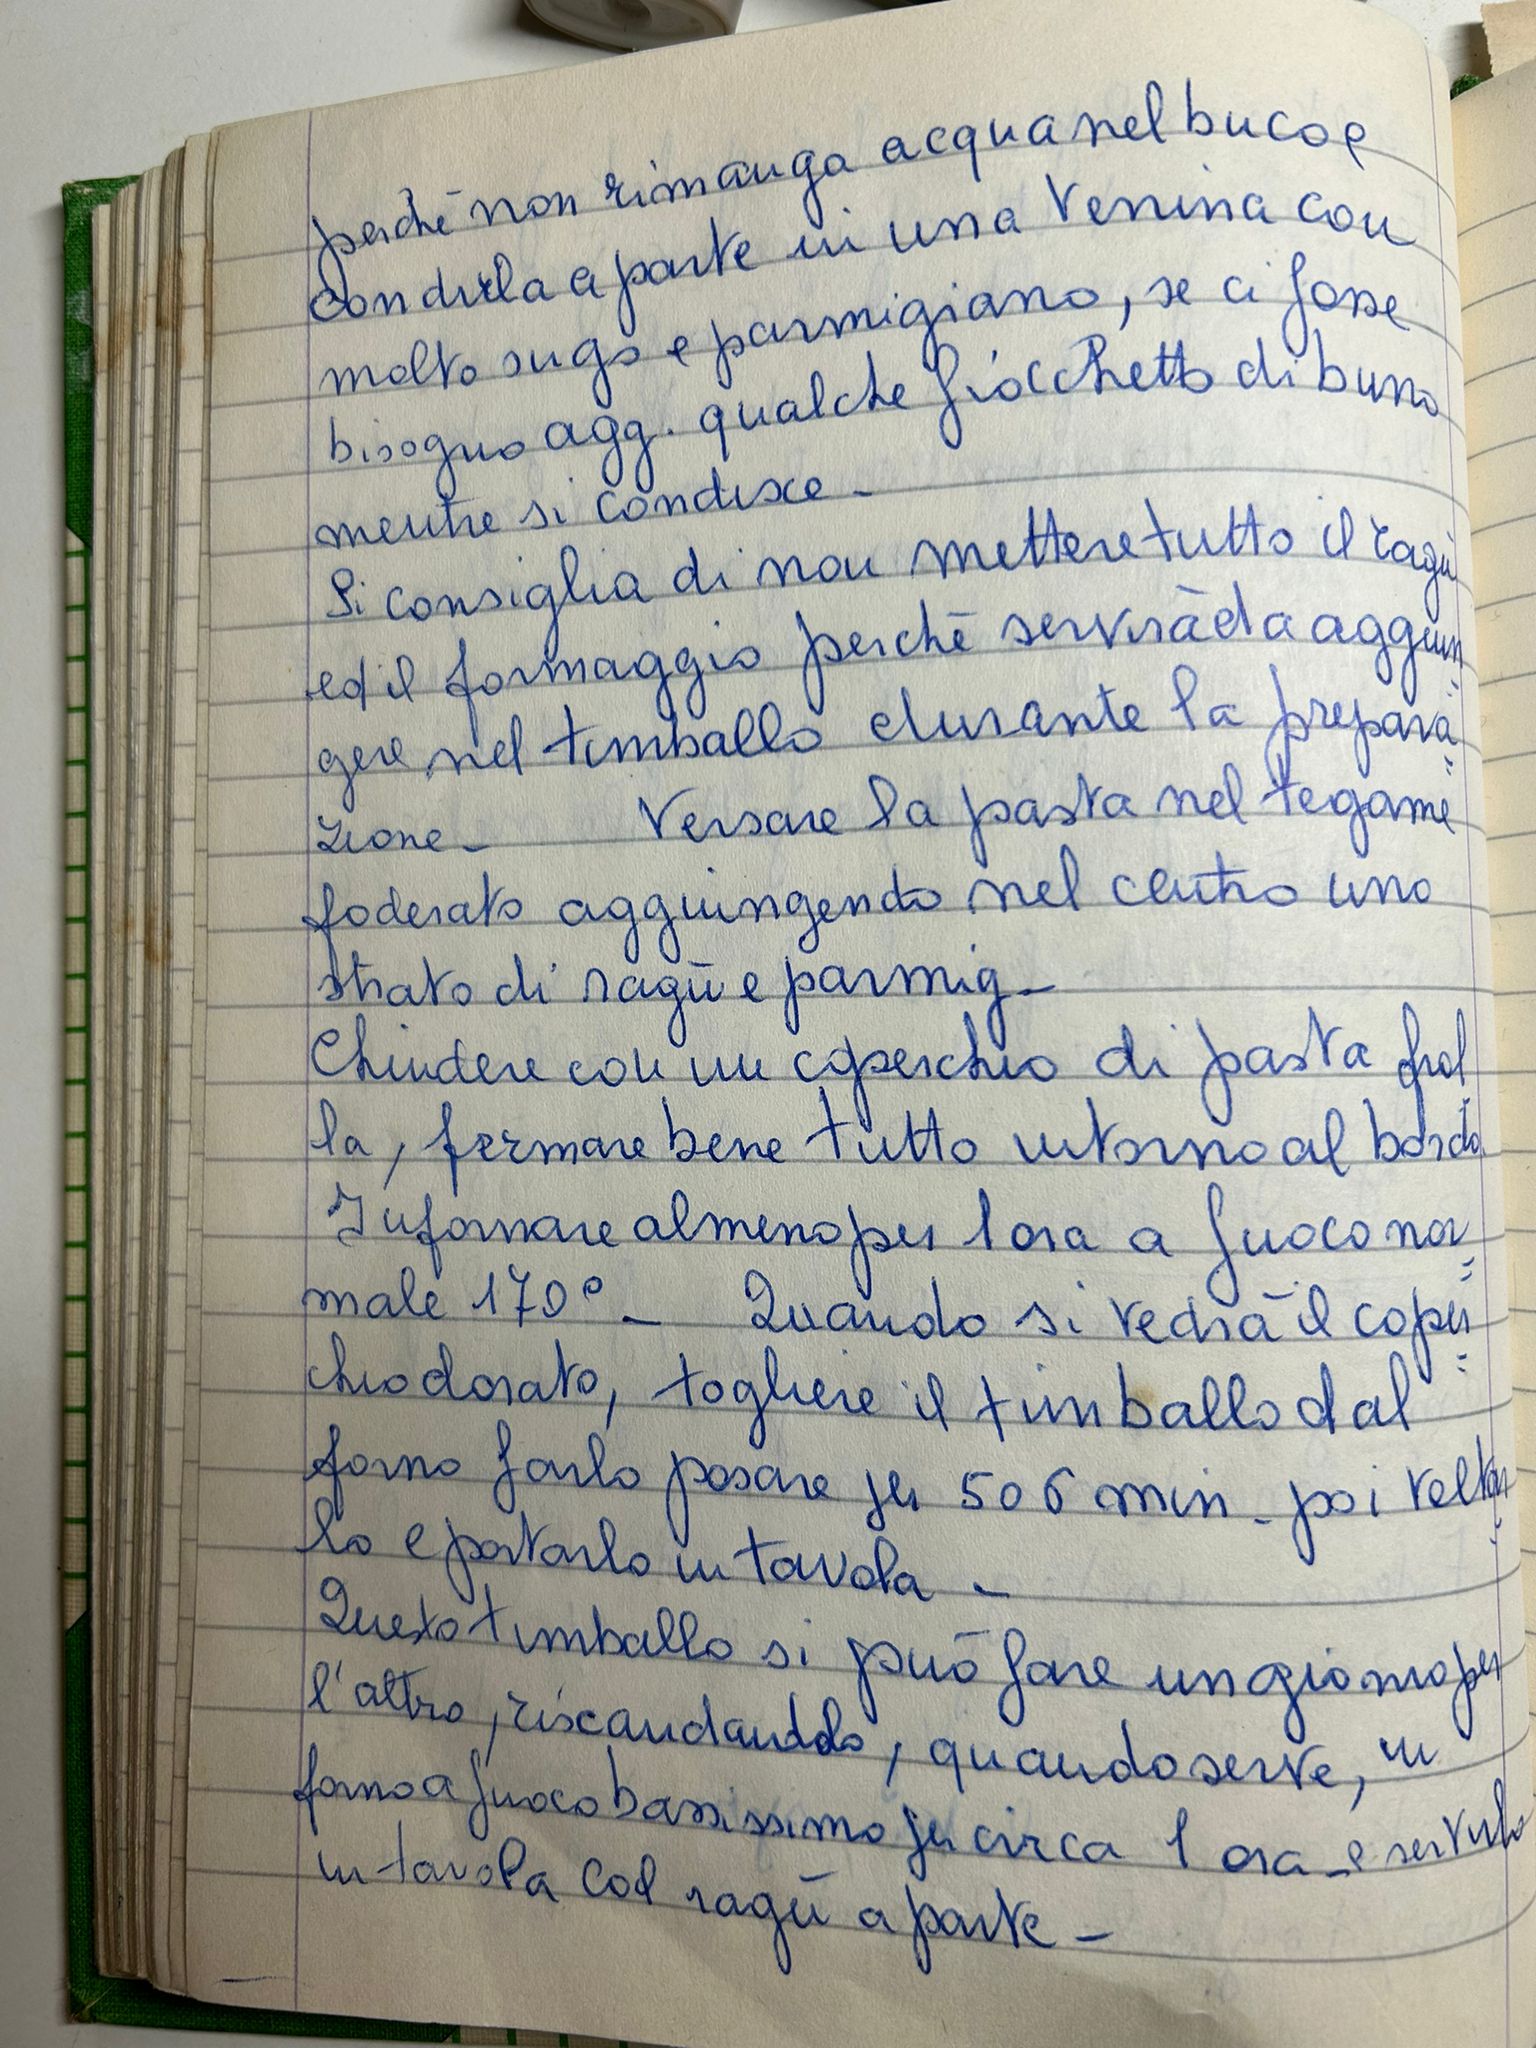 perchè non rimanga acqua nel buco e
condirla a parte in una renina con
molto sugo e parmigiano, se ci fosse
bisogno agg. qualche fiocchetto di burro
mentre si condisce -
Si consiglia di non mettere tutto il ragù
ed il formaggio perchè servirà da aggiun=
gere nel timballo durante la prepara=
zione - Versare la pasta nel tegame
foderato aggiungendo nel centro uno
strato di ragù e parmig -
Chiudere con un coperchio di pasta frol=
la, fermare bene tutto intorno al bordo.
Infornare almeno per 1 ora a fuoco nor=
male 170° - Quando si vedrà il coper=
chio dorato, togliere il timballo dal
forno farlo posare per 5 o 6 min - poi voltar=
lo e portarlo in tavola -
Questo timballo si può fare un giorno per
l'altro, riscaldandolo, quando serve, in
forno a fuoco bassissimo per circa 1 ora - e servirlo
in tavola col ragù a parte -